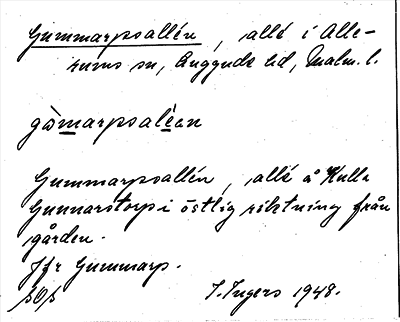 Gummarpsallén, allé i Alle-
rums sn, Luggude hd, Malm. l.
gòmarpsaléen
Gummarpsallén, allé å Kulla
Gunnarstorp i östlig riktning från
gården.
Jfr Gummarp.
I. Ingers 1948.